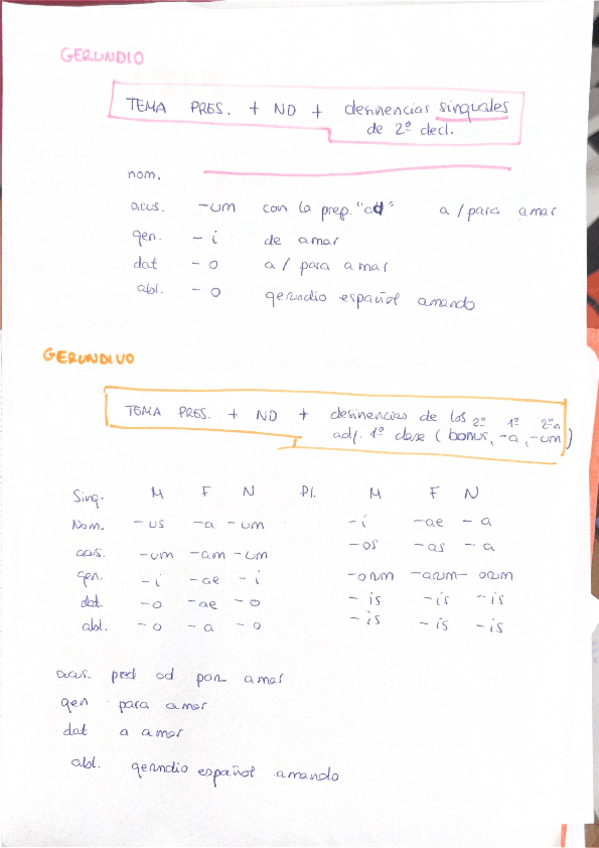 GERUNDIO
TEMA PRES. + ND + desinencias singuales
de 2º decl.
nom.
acus. -um con la prep. "ad" a / para amar
gen. - i de amar
dat - o a / para amar
abl. - o gerundio español amando
GERUNDIVO
TEMA PRES. + ND + desinencias de los 2º 1º 2ºn
adj. 1º clase (bonus, -a, -um)
Sing. M F N Pl. M F N
Nom. -us -a -um -i -ae -a
acus. -um -am -um -os -as -a
gen. -i -ae -i -orum -arum -orum
dat. -o -ae -o -is -is -is
abl. -o -a -o -is -is -is
acus. ad por amar
gen para amar
dat a amar
abl. gerundio español amando